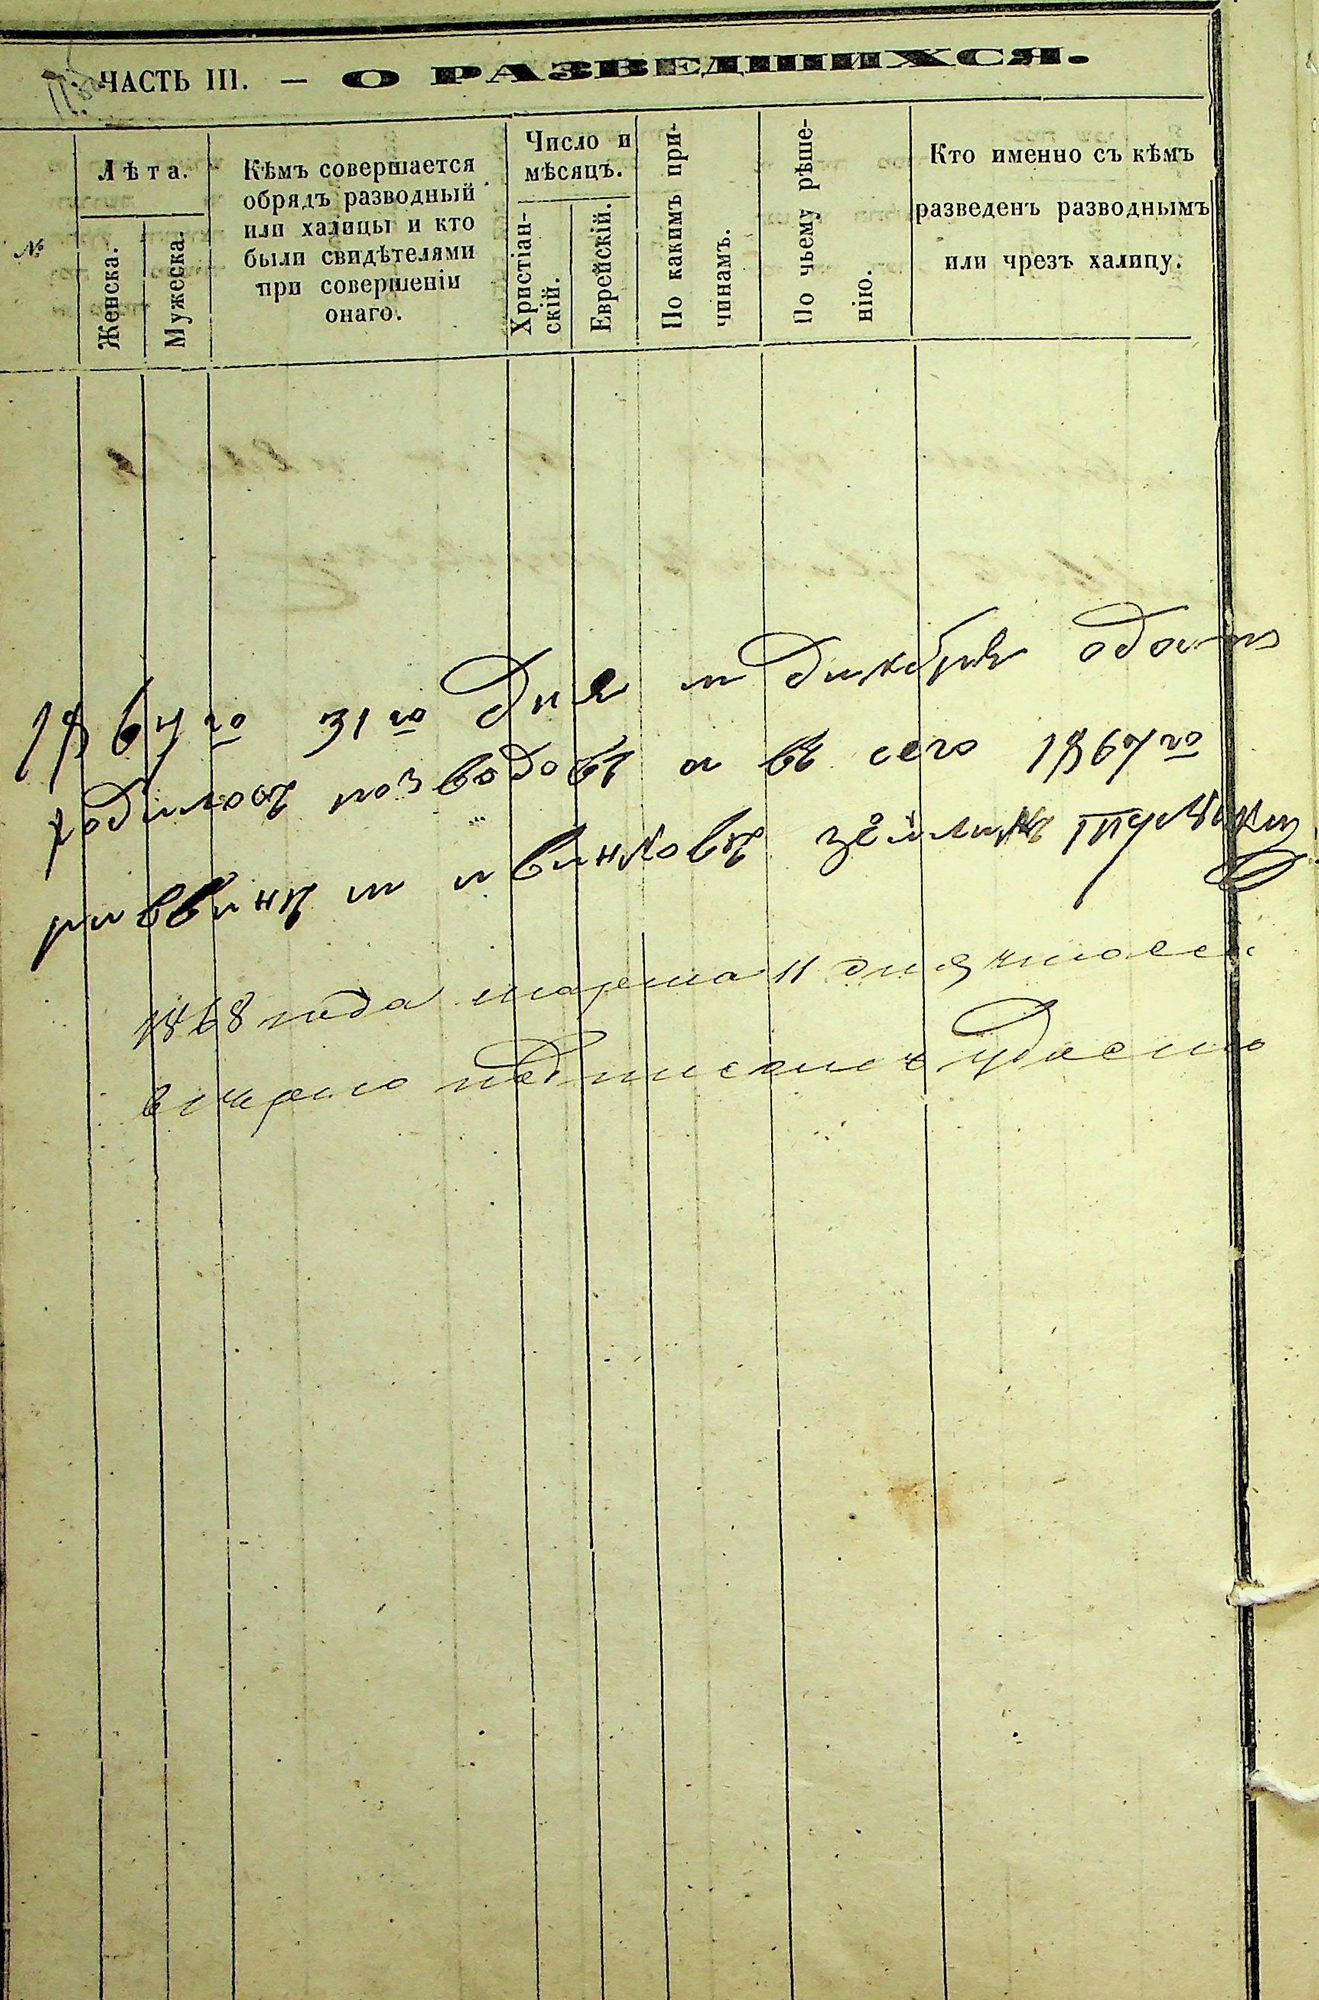 ЧАСТЬ III. — О РАЗВЕДШИХСЯ.
№
Лѣта.
Женска.
Мужеска.
Кѣмъ совершается
обрядъ разводный
или халицы и кто
были свидѣтелями
при совершеніи
онаго.
Число и
мѣсяцъ.
Христіан-
скій.
Еврейскій.
По какимъ при-
чинамъ.
По чьему рѣше-
нію.
Кто именно съ кѣмъ
разведенъ разводнымъ
или чрезъ халицу.
1867го 31го дня м дикабря
розводовъ а въ сего 1867го
раввинъ м
1868 года марта 11 дня число
верно подписомъ